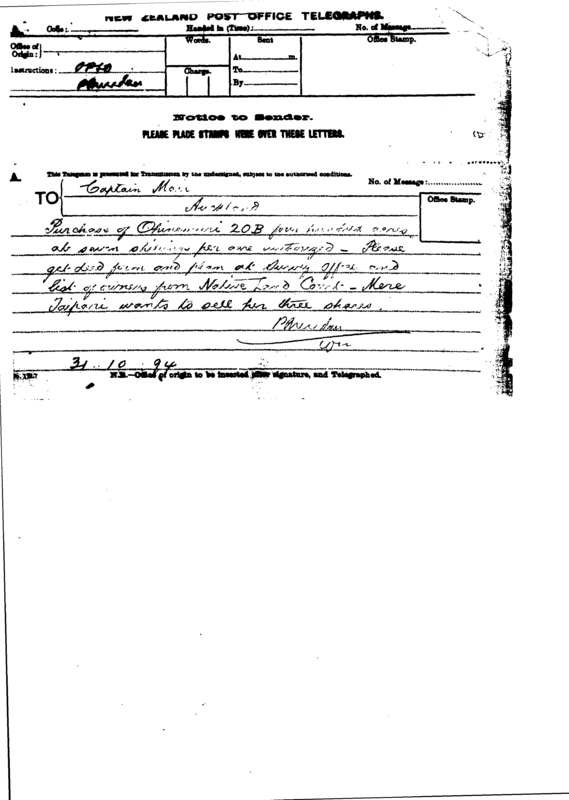 NEW ZEALAND POST OFFICE TELEGRAPHS.
A. Code: Handed in (Time): No. of Message
Office of Origin: Words. Sent Office Stamp.
At m.
Instructions: OPSO Charge. To
PSheridan By
Notice to Sender.
PLEASE PLACE STAMPS HERE OVER THESE LETTERS.
A. This Telegram is presented for Transmission by the undersigned, subject to the authorised conditions.
No. of Message:
TO Captain Mair Office Stamp.
Auckland
Purchase of Ohinemuri 20B four hundred acres
at seven shillings per acre authorized - Please
get deed form and plan at Survey Office and
list of owners from Native Land Court - Mere
Taipari wants to sell her three shares.
PSheridan
Wn
31. 10. 94
N.B.—Office of origin to be inserted after signature, and Telegraphed.